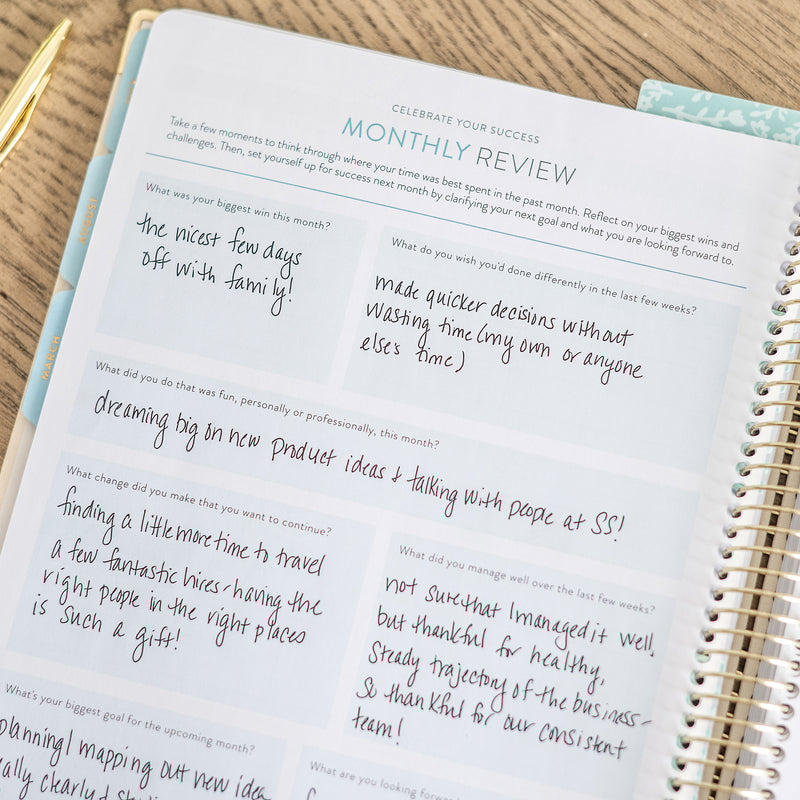 CELEBRATE YOUR SUCCESS
MONTHLY REVIEW
Take a few moments to think through where your time was best spent in the past month. Reflect on your biggest wins and
challenges. Then, set yourself up for success next month by clarifying your next goal and what you are looking forward to.
What was your biggest win this month?
the nicest few days
off with family!
What do you wish you'd done differently in the last few weeks?
made quicker decisions without
wasting time (my own or anyone
else's time)
What did you do that was fun, personally or professionally, this month?
dreaming big on new product ideas & talking with people at SS!
What change did you make that you want to continue?
finding a little more time to travel
a few fantastic hires - having the
right people in the right places
is such a gift!
What did you manage well over the last few weeks?
not sure that I managed it well,
but thankful for healthy,
steady trajectory of the business -
so thankful for our consistent
team!
What's your biggest goal for the upcoming month?
planning / mapping out new idea
clearly &
What are you looking forward
AUGUST
MARCH